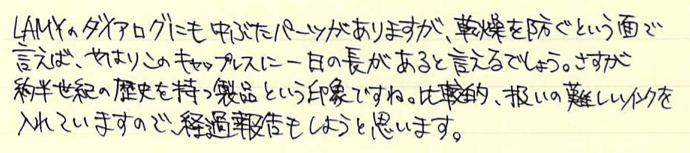 LAMYのダイアログにも中ぶたパーツがありますが、乾燥を防ぐという面で
言えば、やはりこのキャップレスに一日の長があると言えるでしょう。さすが
約半世紀の歴史を持つ製品という印象ですね。比較的、扱いの難しいインクを
入れていますので、経過報告もしようと思います。